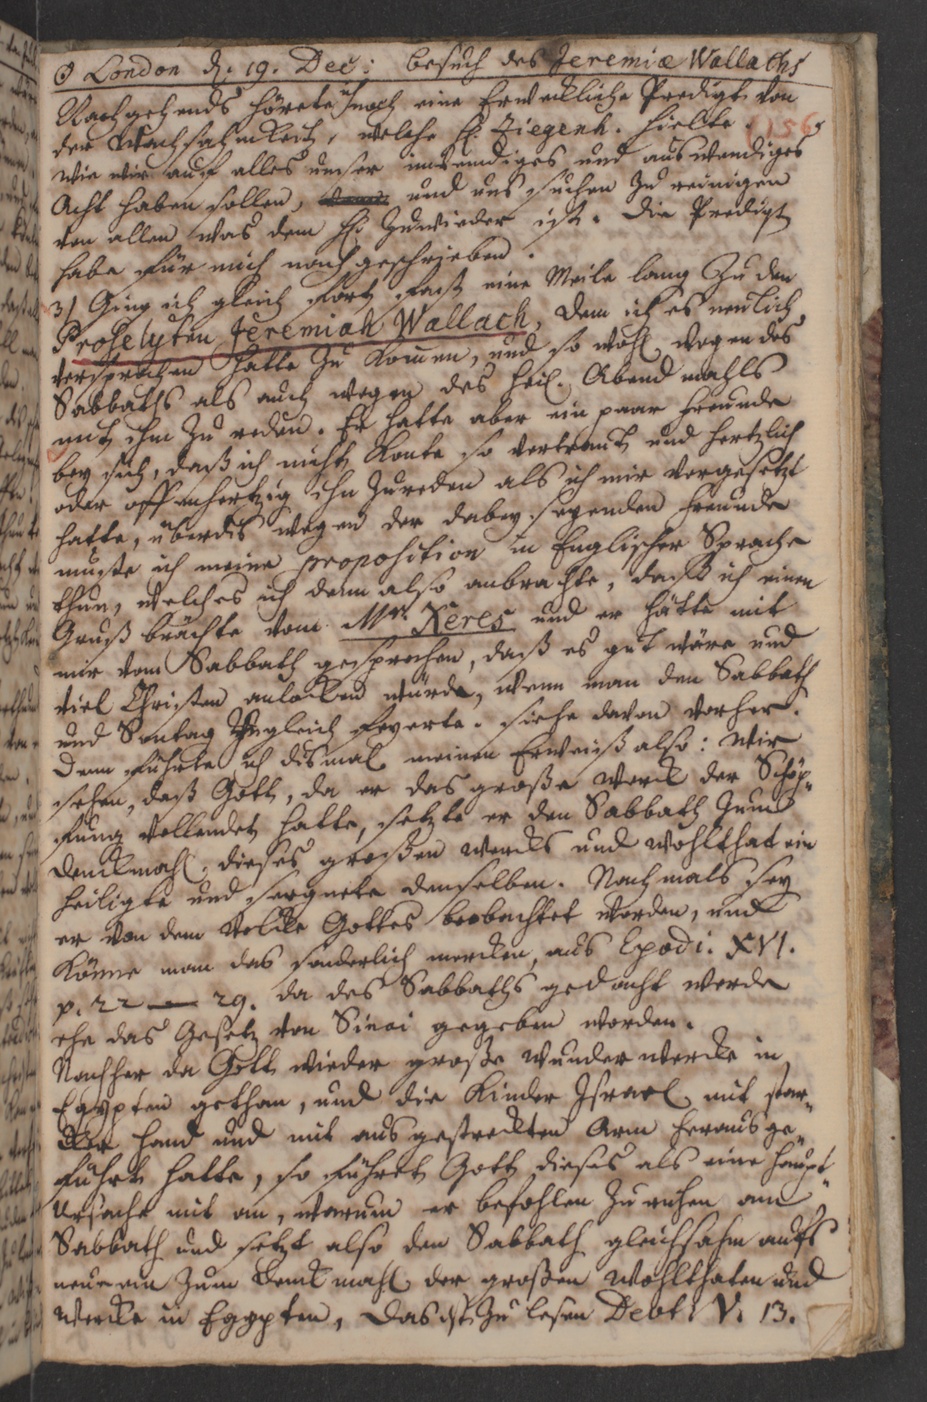 ☉ London d. 19. Dec: besuch des Jeremiæ Wallachs
Nachgehends hörete ich noch eine Erweckliche Predigt von
der Wachsahmkeit, welche H. Ziegenh. hielte. 156
wie wir auf alles unser inwendiges und auswendiges
Acht haben sollen, und uns suchen zu reinigen
von allen was dem H. zuwieder ist. Die Predigt
habe für mich nachgeschrieben.
3/ Ging ich gleich fort fast eine Meile lang zu den
Proselyten Jeremiah Wallach, dem ich es neulich
versprochen hatte zu kommen, und so wohl wegen des
Sabbaths als auch wegen des heil. Abendmahls
mit ihm zu reden. Er hatte aber ein paar Freunde
bey sich, daß ich nicht konte so vertraut und hertzlich
oder offenhertzig ihn zureden als ich mir vorgesetzt
hatte, überdis wegen der dabey seyenden Freunde
muste ich meine proposition in Englischer Sprache
thun, welches ich denn also anbrachte, daß ich einen
Gruß brächte vom Mr. Xeres und er hätte mit
mir vom Sabbath gesprochen, daß es gut wäre und
viel Christen anlocken würde, wenn man den Sabbath
und Sontag zugleich feyerte. siehe davon vorher.
Denn führte ich dismal meinen Erweiß also: Wir
sehen, daß Gott, da er das große werck der Schöp-
fung vollendet hatte, setzte er den Sabbath zum
denckmahl, dieses großen wercks und wohlthat ein
heiligte und seegnete denselben. Nachmals sey
er von dem Volcke Gottes beobachtet worden, und
könne man das sonderlich mercken, aus Exodi. XVI.
p. 22 — 29. da des Sabbaths gedacht werde
ehe das Gesetz von Sinai gegeben worden.
Nachher da Gott wieder große wunderwercke in
Egypten gethan, und die Kinder Israel mit star-
cker Hand und mit ausgestreckten Arm herausge-
führt hatte, so führt Gott dieses als eine Haupt-
Ursache mit an, warum er befohlen zu ruhen am
Sabbath und setzt also den Sabbath gleichsahm aufs
neue ein zum denckmahl der großen Wohlthaten und
wercke in Egypten, Das ist zu lesen Debt: V. 13.